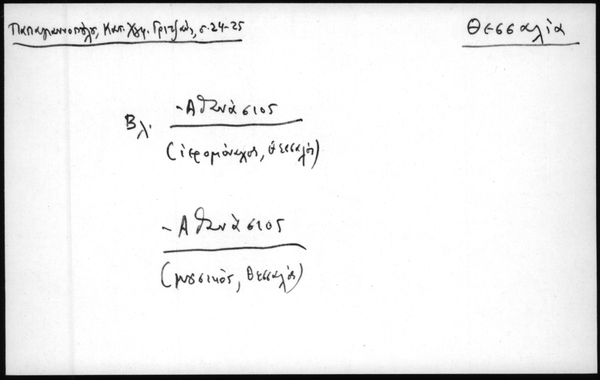 Παπαγιαννοπούλου, Κατ. Χφ. Γριτζαν., σ. 24-25
Θεσσαλία
Βλ. - Αθανάσιος
(ιερομόναχος, Θεσσαλός)
- Αθανάσιος
(μουσικός, Θεσσαλός)